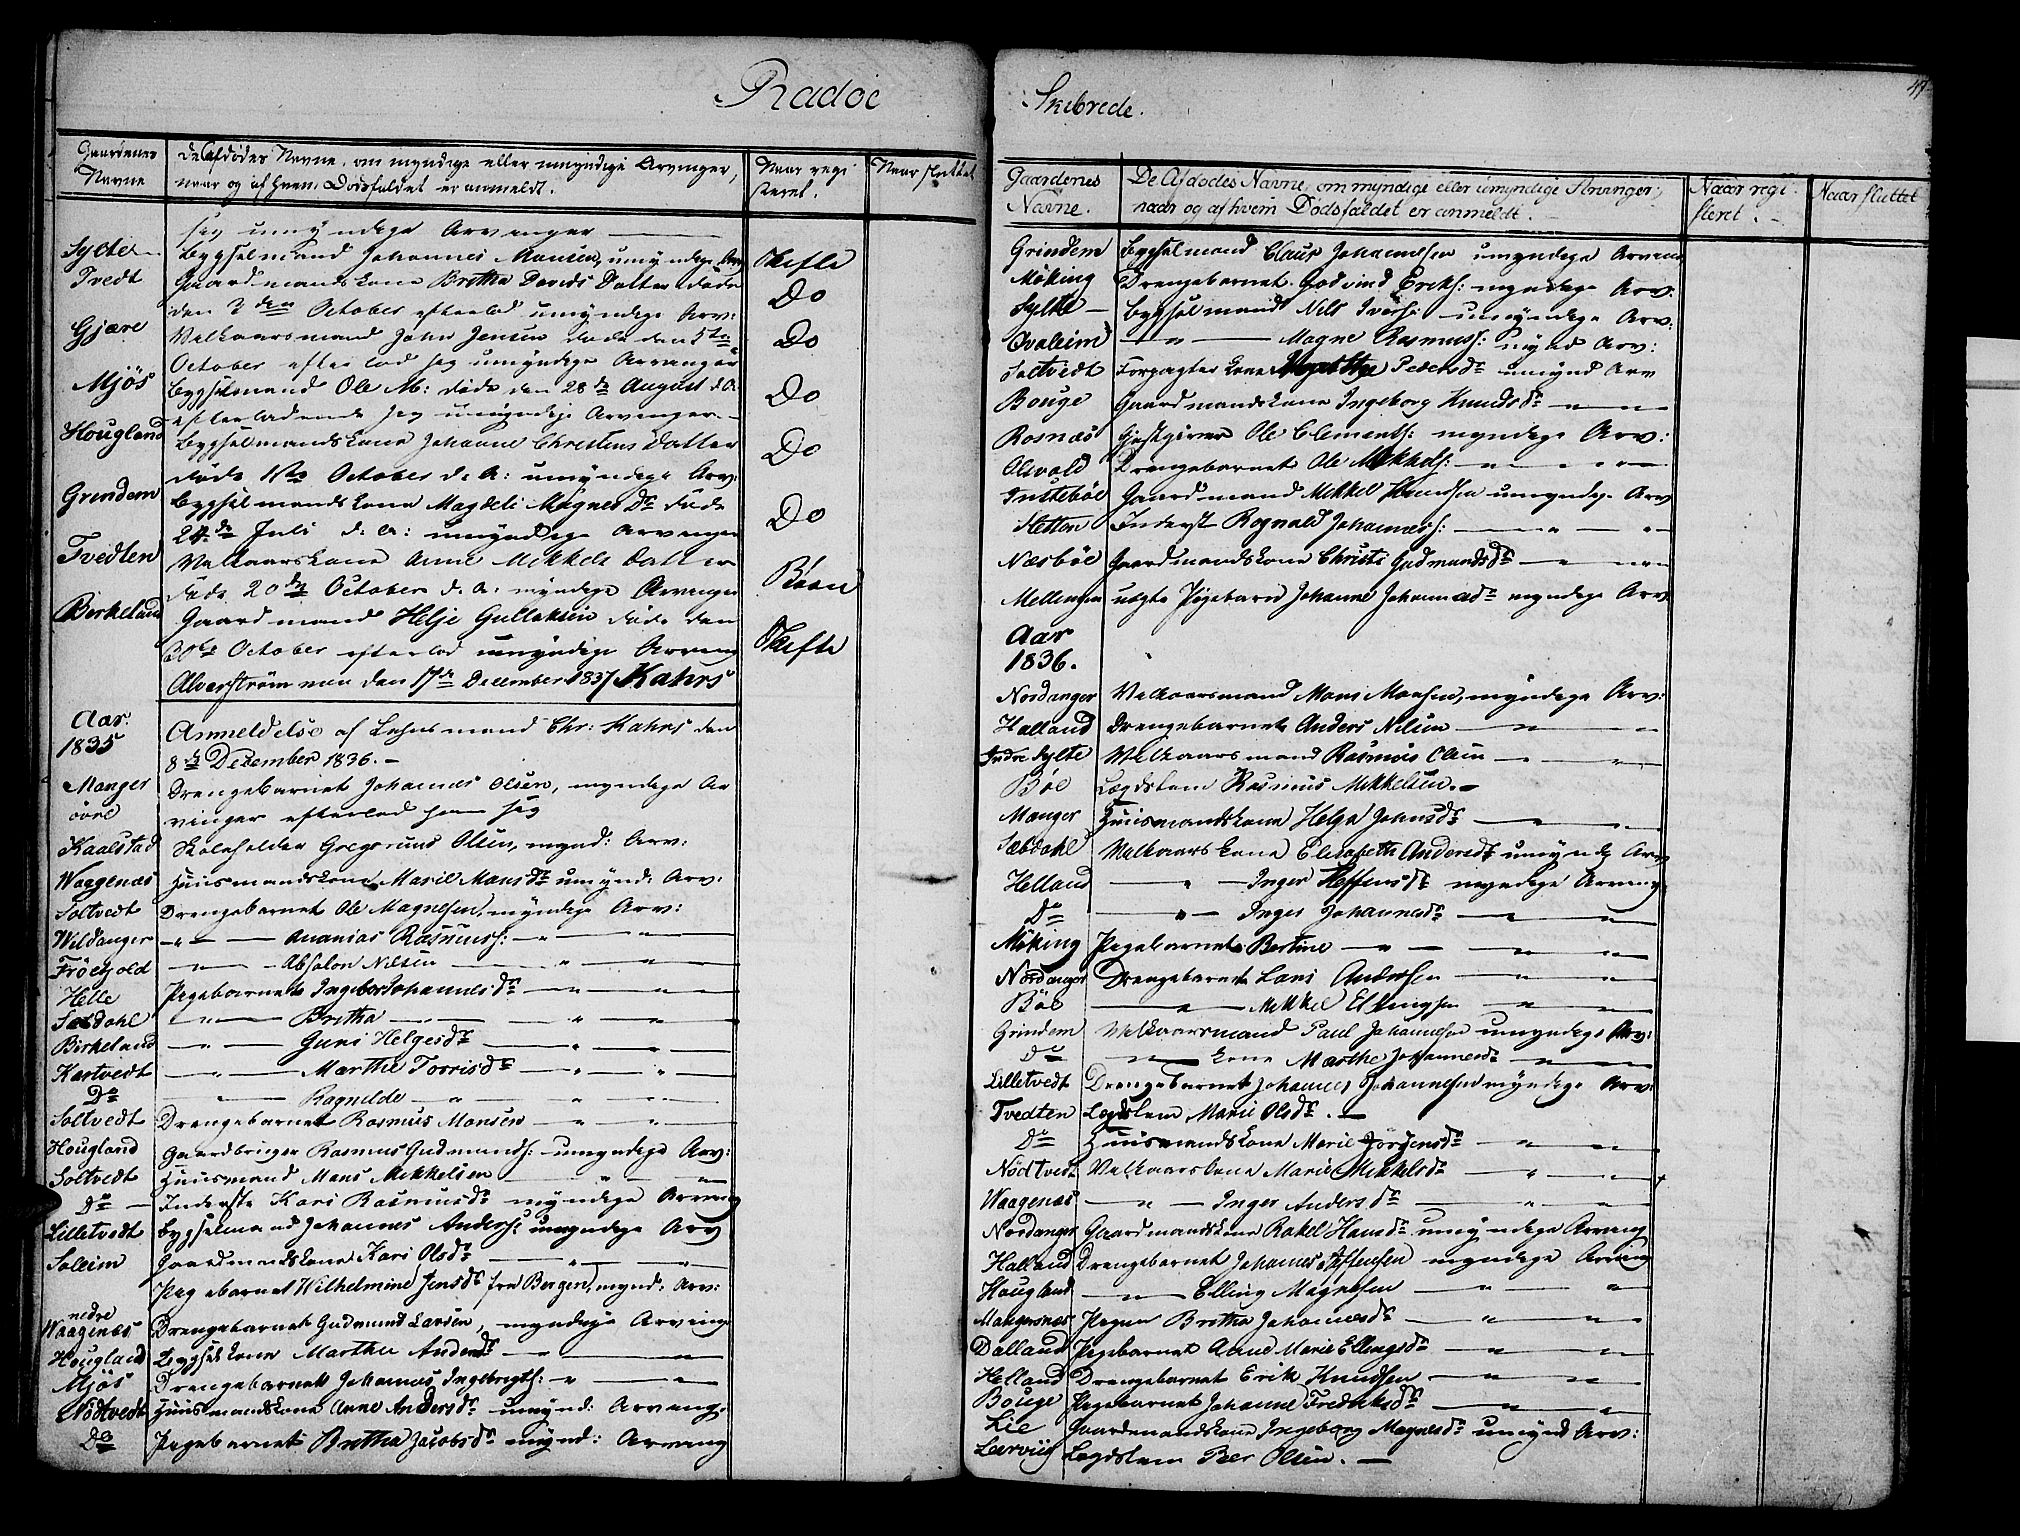 Radöe
Gaardenes Navne
De Afdödes Navne, om myndige eller umyndige Arvinger,
naar og af hvem Dödsfaldet er anmeldt.
Naar registeret.
Naar sluttet
sig umyndige Arvinger
Sylte Bygselmand Johannes Monsen, umyndige Arv Skifte
Tvedt Gaardmandskone Britha Davids Datter döde
den 2den October efterlod umyndige Arv: Do
Gjære Velkaarsmand John Jensen döde den 5te
October efterlod sig umyndige Arvinger Do
Mjös Bygselmand Ole M: döde den 28de August d. A.
efterladende sig umyndige Arvinger Do
Hougland Bygselmandskone Johanne Christens Datter
döde October d. A: umyndige Arv: Do
Grindem Bygselmandskone Magdeli Magnes Dr döde
24de Juli d. A: umyndige Arvinger Do
Tvedten Velkaarskone Anne Mikkels Datter
döde 20de October d. A. myndige Arvinger Böen
Birkeland Gaardmand Helje Gullaksen döde den
30te October efterlod umyndige Arving Skifte
Alverström den 17de December 1837 Kahrs
Aar 1835
Anmeldelse af Lehnsmand Chr: Kahrs den
8de Dezember 1836. –
Manger övre Drengebarnet Johannes Olsen, myndige Ar
vinger efterlod ham sig
Kaalstad Skoleholder Gregorius Olsen, mynd: Arv:
Waagenæs Huusmandskone Marie Mons Dr umynd: Arv:
Soltvedt Drengebarnet Ole Magnesen, myndige Arv:
Wildanger — " — Ananias Rasmuss: — " — " —
Fröchold — " — Absalon Nilsen — " — " —
Helle Pigebarnet Ingebor Johannesdr — " — " —
Sæbdahl — " — Britha — " — " —
Birkeland — " — Guri Helgesdr — " — " —
Kartvedt — " — Marthe Torrisdr — " — " —
Do — " — Ragnilde — " — " —
Soltvedt Drengebarnet Rasmus Monsen — " — " —
Hougland Gaardbruger Rasmus Gudmunds: umyndige Arv:
Soltvedt Huusmand Mons Mikkelsen — " — " —
Do — Inderste Kari Rasmusdr myndige Arving
Lilletvedt Bygselmand Johannes Anderss: umyndige Arv
Soleim Gaardmandskone Kari Olsdr — " — " —
Pigebarnet Wilhelmine Jensdr fra Bergen, mynd: Arv:
nedre Waagenæs Drengebarnet Gudmund Larsen, myndige Arving
Hougland Bygselkone Marthe Andersdr — " —
Mjös Drengebarnet Johannes Ingebrigts: — " — " —
Nödtvedt Huusmandskone Anne Andersdr umynd: Arving.
Do Pigebarnet Britha Jacobsdr mynd: Arving
Skibrede.
47
Gaardenes Navne.
De Afdödes Navne, om myndige eller umyndige Arvinger,
naar og af hvem Dödsfaldet er anmeldt.
Naar registeret.
Naar sluttet
Grindem Bygselmand Claus Johannesen umyndige Arving
Möking Drengebarnet Godvind Eriks: myndige Arv:
Sylte — Bygselmand Nils Iverss: umyndige Arv:
Qvaleim — " — Magne Rasmuss: mynd Arv:
Soltvedt Forpagterkone Pedersdr umynd Arv
Bouge Gaardmandskone Ingeborg Knudsdr — " —
Rosnæs Gjestgiver Ole Clements: myndige Arv:
Olsvold Drengebarnet Ole Mikkels: — " — " —
Gaardmand Mikkel Knudsen umyndige Arv
Sletten Inderst Rognald Johanness: — " — " —
Næsböe Gaardmandskone Christi Gudmundsdr — " — " —
Mellingen uægte Pigebarn Johanne Johannesdr myndige Arv
Aar 1836.
Nordanger Velkaarsmand Mons Monsen, myndige Arv:
Halland Drengebarnet Anders Nilsen — " — " —
Indre Sylte Velkaarsmand Rasmus Olsen — " — " —
Böe Lægdslem Rasmus Mikkelsen. –
Manger Huusmandskone Helga Johnsdr — " — " —
Sæbdahl Velkaarskone Elisabeth Andersdr umyndig Arv
Helland — " — Inger Steffensdr myndige Arving
Do — " — Inger Johannesdr — " — " —
Möking Pigebarnet Bertine — " — " —
Nordanger Drengebarnet Lars Andersen — " — " —
Böe — " — Mikkel Ellingsen — " — " —
Grindem Velkaarsmand Paul Johannesen umyndige Arv:
Do — " — kone Marthe Johannesdr — " — " —
Lilletvedt Drengebarnet Johannes Johannesen myndige Arv:
Tvedten Lægdslem Marie Olsdr. —
Do Huusmandskone Marie Jörgensdr — " — " —
Nödtvedt Velkaarskone Marie Mikkelsdr — " — " —
Waagenæs — " — Inger Andersdr — " — " —
Nordanger Gaardmandskone Rakel Hansdr umyndige Arving
Halland Drengebarnet Johannes Steffensen myndige Arving
Hougland — " — Elling Magnesen — " — " —
Mangersnæs Pigen Britha Johannesdr — " — " —
Dalland Pigebarnet Anne Marie Ellingsdr — " — " —
Helland Drengebarnet Erik Knudsen — " — " —
Bouge Pigebarnet Johanne Fredriksdr — " — " —
Lie Gaardmandskone Ingeborg Magnesdr umynd Arv:
Lærviig Lægdslem Peer Olsen. —